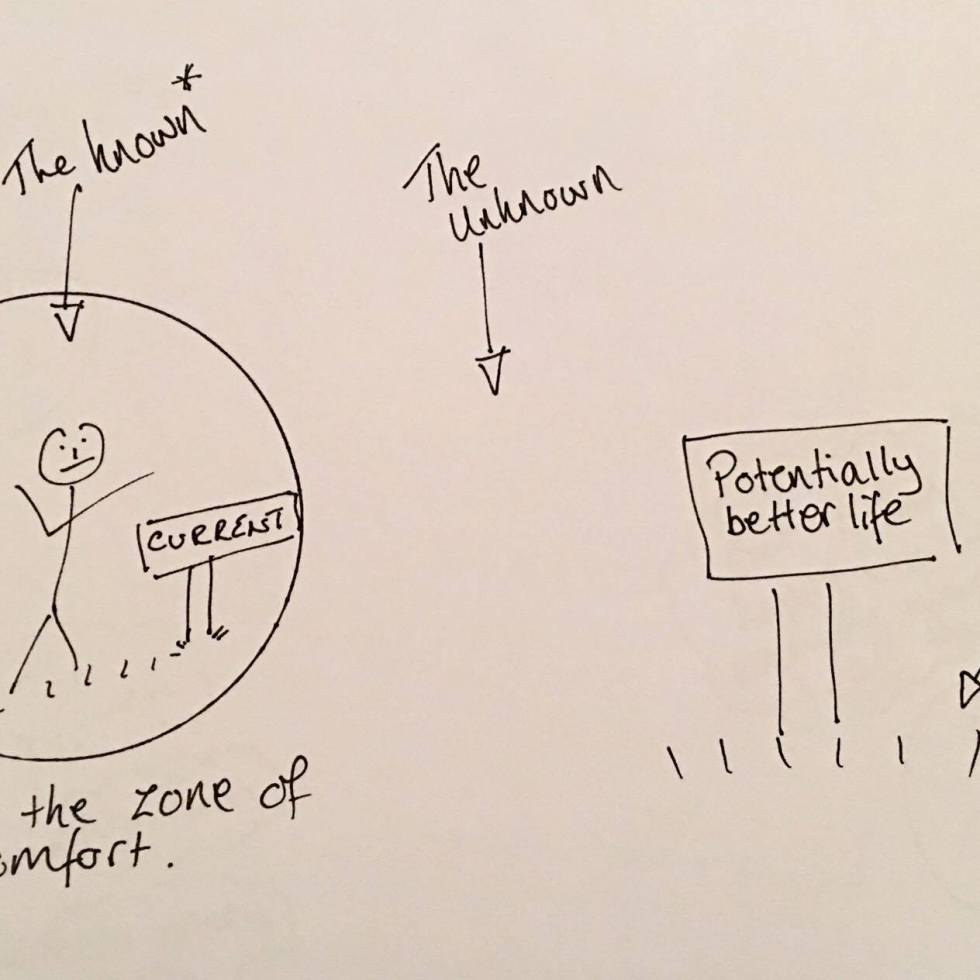 The known*
The
unknown
CURRENT
Potentially
better life
the zone of
omfort.